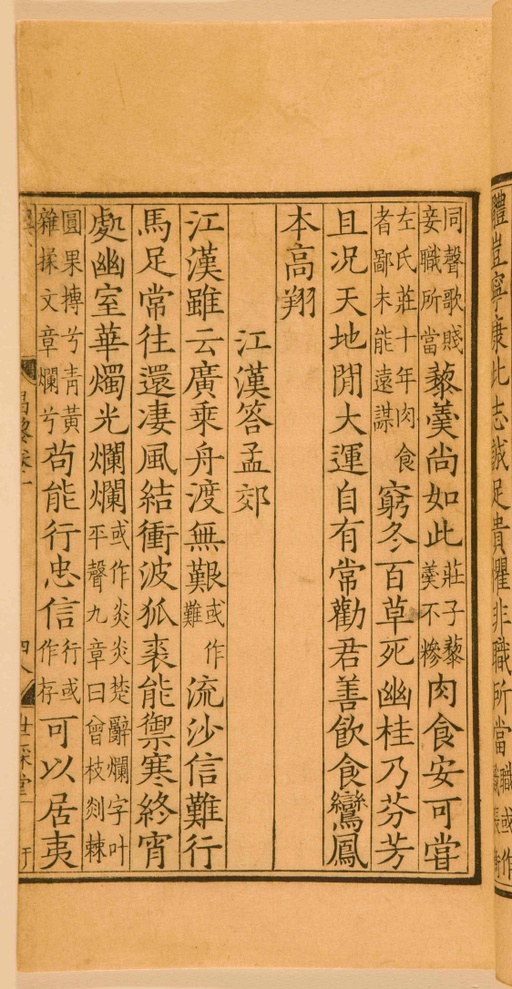 體豈寧康此志誠足貴懼非職所當職或作
同聲歌賤妾職所當藜羹尚如此莊子藜羹不糝肉食安可嘗
左氏莊十年肉食者鄙未能遠謀窮冬百草死幽桂乃芬芳
且况天地閒大運自有常勸君善飮食鸞鳳
本高翔
江漢答孟郊
江漢雖云廣乘舟渡無艱或作難流沙信難行
馬足常往還凄風結衝波狐裘能禦寒終宵
處幽室華燭光爛爛或作炎炎楚辭爛字叶平聲九章曰曾枝剡棘
圓果摶兮青黃雜揉文章爛兮苟能行忠信行或作存可以居夷
昌黎卷一
世綵堂